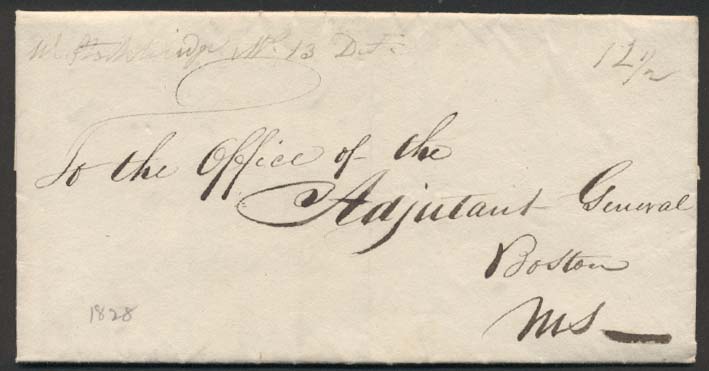 W. Stockbridge Ms. 13 Dec. 12 1/2
To the Office of the
Adjutant General
Boston
Ms
1828